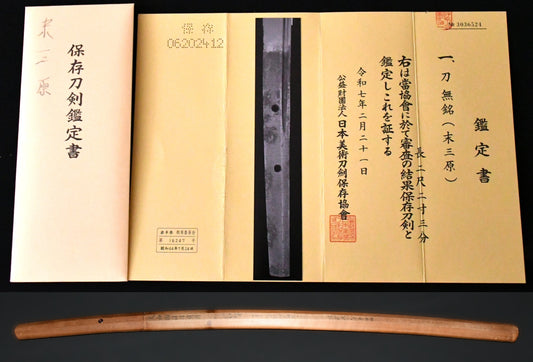 末三原
保存刀剣鑑定書
06202412
№ 3036524
鑑定書
一、刀 無銘(末三原)
長二尺二寸三分
右は當協會に於て審査の結果保存刀剣と
鑑定しこれを証する
令和七年二月二十一日
公益財團法人日本美術刀劍保存協會